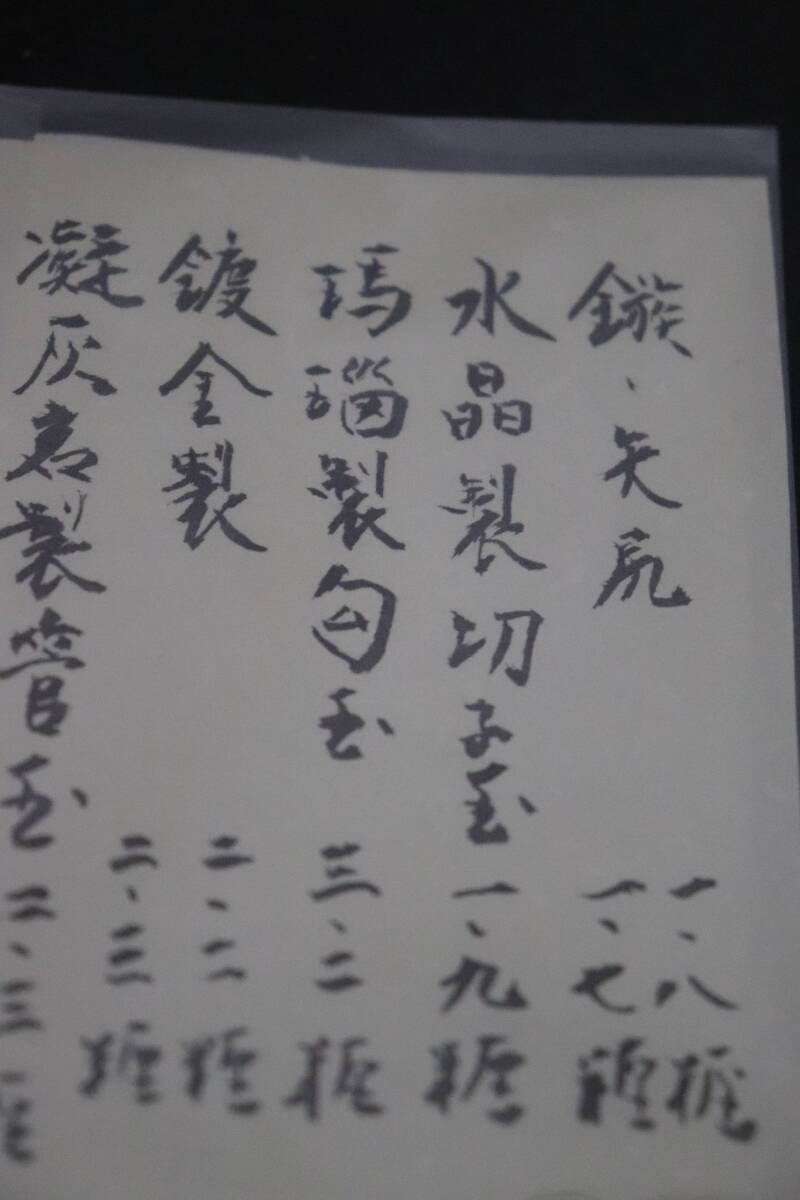 鏃、矢尻 一、八糎
一、七糎
水晶製切子玉 一、九糎
瑪瑙製勾玉 三、二糎
鍍金製 二、二糎
二、三糎
凝灰岩製管玉 二、三糎